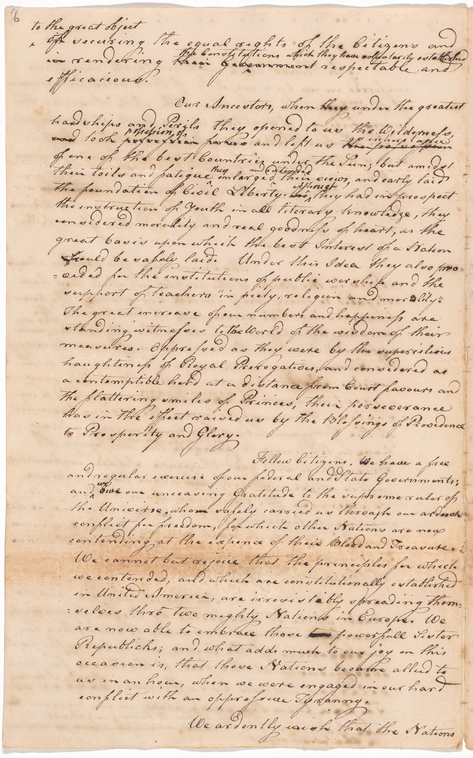 6
to the great object
of securing the equal rights of the Citizens and
the Constitutions which they have voluntarily established
in rendering their government respectable and
efficacious.
Our Ancestors, when they under the greatest
hardships and Perils they opened to us the Wilderness,
possession of
and took and left us
of one of the best Countries under the Sun; but amidst
they
their toils and fatigue enlarged their views, and early laid
the foundation of Civil Liberty; they had in prospect
the instruction of Youth in all literary knowledge, they
considered morality and real goodness of heart, as the
great basis upon which the best Interest of a Nation
could be safely laid. Under this Idea they also pro-
=ceded for the institutions of public worship and the
support of teachers in piety, religion and morality:
The great increase of our numbers and happiness are
standing witnesses to the World of the wisdom of their
measures. Oppressed as they were by the supercilious
haughtiness of Royal Prerogative, and considered as
a contemptible herd at a distance from Court favours and
the flattering smiles of Princes, their perseverance
has in the effect raised us by the Blessings of Providence
to Prosperity and Glory.
Fellow Citizens, We have a free
and regular exercise of our federal and State Governments;
we
and owe our unceasing Gratitude to the supreme ruler of
the Universe, who safely carried us through our arduous
conflict for freedom, for which other Nations are now
contending at the expence of their Blood and Treasure.
We cannot but rejoice that the principles for which
we contended, and which are constitutionally established
in United America, are irresistably spreading them-
=selves thro two mighty Nations in Europe. We
are now able to embrace those powerfull Sister
Republicks; and what adds much to our joy on this
occasion is, that those Nations became allied to
us in an hour, when we were engaged in our hard
conflict with an oppressive Tyranny.
We ardently wish that the Nations